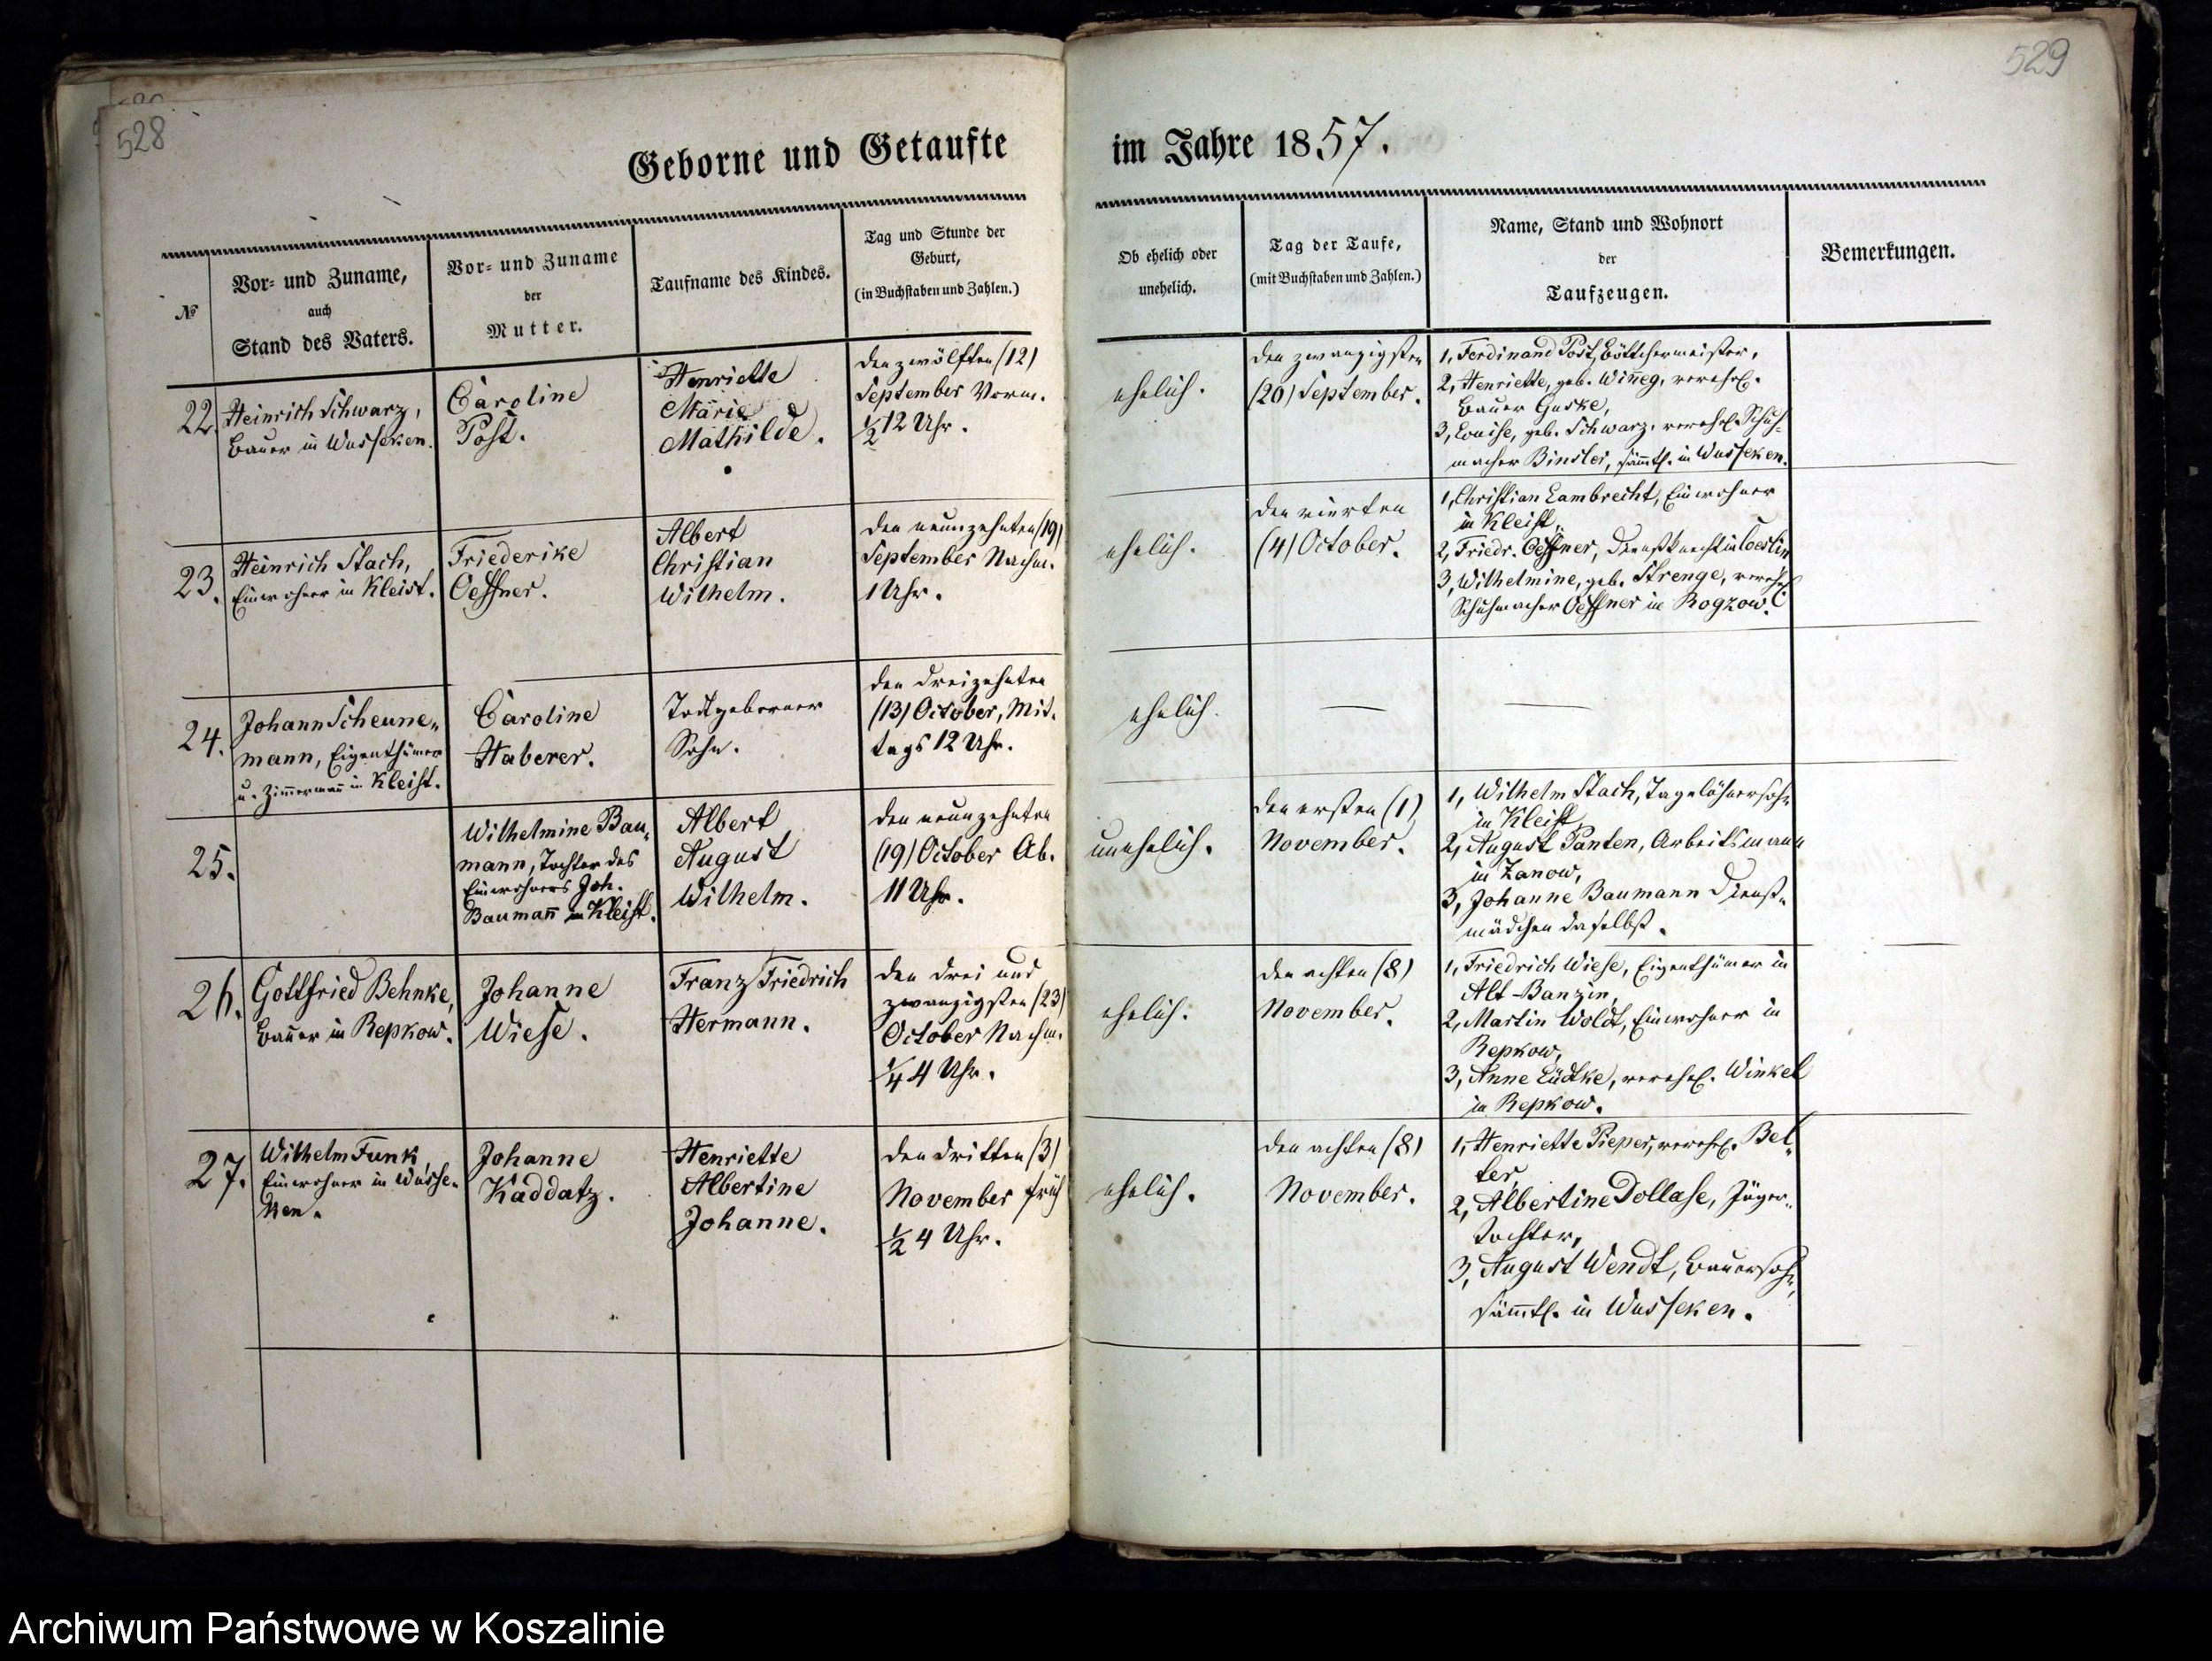 528
529
Geborne und Getaufte
im Jahre 1857.
№
Vor- und Zuname,
auch
Stand des Vaters.
Vor- und Zuname
der
Mutter.
Taufname des Kindes.
Tag und Stunde der
Geburt,
(in Buchstaben und Zahlen.)
Ob ehelich oder
unehelich.
Tag der Taufe,
(mit Buchstaben und Zahlen.)
Name, Stand und Wohnort
der
Taufzeugen.
Bemerkungen.
22.
Heinrich Schwarz,
Bauer in Wusseken.
Caroline
Post.
Henriette
Marie
Mathilde.
den zwölften (12)
September Vorm.
½12 Uhr.
ehelich.
den zwanzigsten
(20) September.
1, Ferdinand Post, Böttchermeister,
2, Henriette, geb. Win̄eg, verehel.
Bauer Guske,
3, Louise, geb. Schwarz, verehel. Schuh-
macher Binsler, säm̄tl. in Wusseken.
23.
Heinrich Stach,
Einwohner in Kleist.
Friederike
Oessner.
Albert
Christian
Wilhelm.
den neunzehnten (19)
September Nachm.
1 Uhr.
ehelich.
den vierten
(4) October.
1, Christian Lambrecht, Einwohner
in Kleist,
2, Friedr. Oessner, Dienstknecht in Coeslin
3, Wilhelmine, geb. Strenge, verehel.
Schuhmacher Oessner in Rogzow.
24.
Johann Scheune-
mann, Eigenthümer
u. Zimmerman̄ in Kleist.
Caroline
Haberer.
Todtgeborner
Sohn.
den dreizehnten
(13) October, Mit-
tags 12 Uhr.
ehelich.
25.
Wilhelmine Bau-
mann, Tochter des
Einwohners Joh.
Bauman̄ in Kleist.
Albert
August
Wilhelm.
den neunzehnten
(19) October Ab.
11 Uhr.
unehelich.
den ersten (1)
November.
1, Wilhelm Stach, Tagelöhnersohn
in Kleist,
2, August Panten, Arbeitsmann
in Zanow,
3, Johanne Baumann Dienst-
mädchen daselbst.
26.
Gottfried Behnke,
Bauer in Repkow.
Johanne
Wiese.
Franz Friedrich
Hermann.
den drei und
zwanzigsten (23)
October Nachm.
¼4 Uhr.
ehelich.
den achten (8)
November.
1, Friedrich Wiese, Eigenthümer in
Alt-Banzin,
2, Martin Woldt, Einwohner in
Repkow,
3, Anne Lüdtke, verehel. Winkel
in Repkow.
27.
Wilhelm Funk,
Einwohner in Wusse-
ken.
Johanne
Kaddatz.
Henriette
Albertine
Johanne.
den dritten (3)
November früh
½4 Uhr.
ehelich.
den achten (8)
November.
1, Henriette Pieper, verehel. Bel-
ter,
2, Albertine Dollase, Jäger-
tochter,
3, August Wendt, Bauersohn,
säm̄tl. in Wusseken.
Archiwum Państwowe w Koszalinie